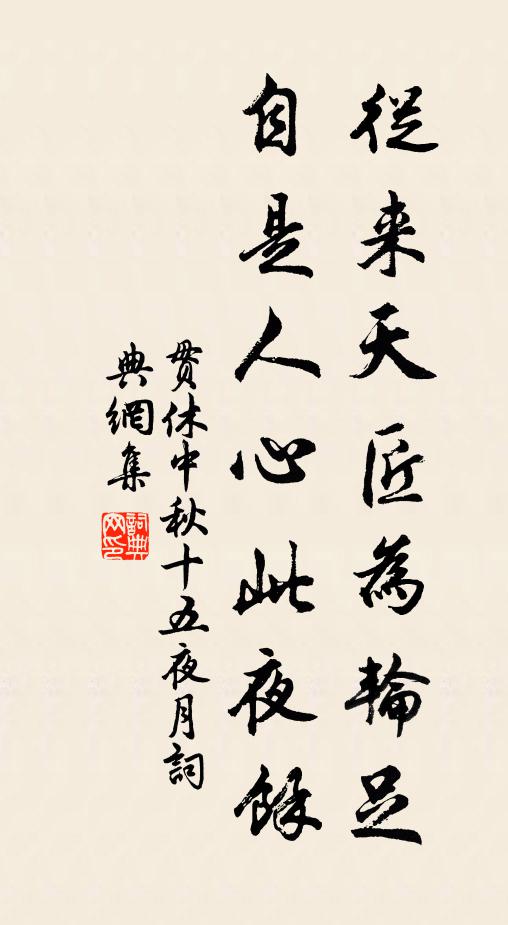 從来天匠為輪足
自是人心此夜餘
貫休中秋十五夜月詞
典網集
詞典網印